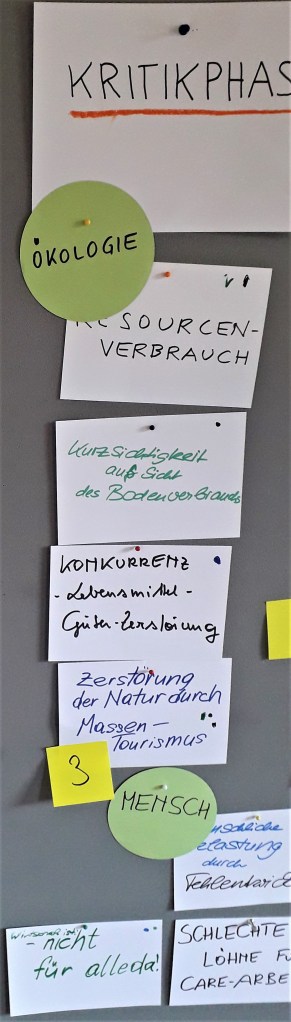 KRITIKPHAS
ÖKOLOGIE
RESSOURCEN-
VERBRAUCH
Kurzsichtigkeit
auf Sicht
des Bodenverbrauchs
KONKURRENZ
- Lebensmittel -
Güter-Zerstörung
Zerstörung
der Natur durch
Massen-
Tourismus
3
MENSCH
elastung
durch
- nicht
für alle da!
SCHLECHTE
LÖHNE FÜ
CARE-ARBE